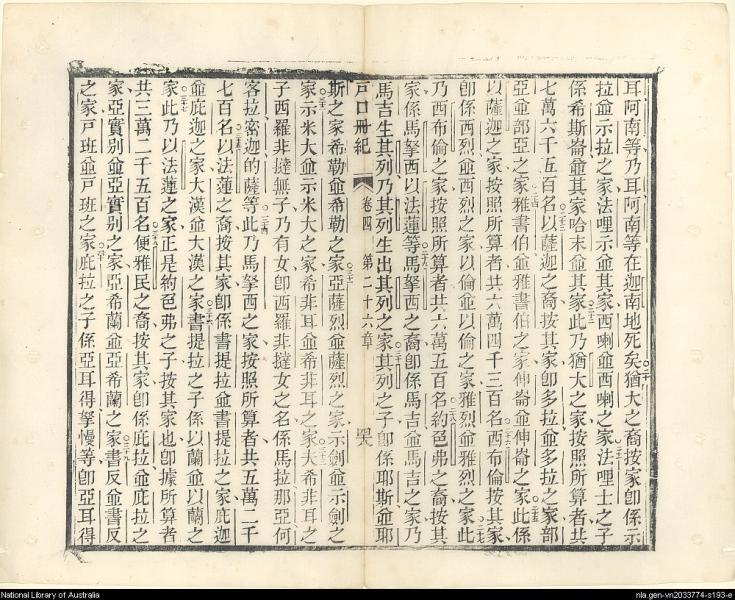 耳阿南等乃耳阿南等在迦南地死矣猶大之裔按家卽係示
拉僉示拉之家法哩示僉其家西喇僉西喇之家法哩士之子
係希斯崙僉其家哈末僉其家此乃猶大之家按照所算者共
七萬六千五百名以薩迦之裔按其家卽多拉僉多拉之家部
亞僉部亞之家雅書伯僉雅書伯之家伸崙僉伸崙之家此係
以薩迦之家按照所算者共六萬四千三百名西布倫按其家
卽係西烈僉西烈之家以倫僉以倫之家雅烈僉雅烈之家此
乃西布倫之家按照所算者共六萬五百名約色弗之裔按其
家係馬拏西以法蓮等馬拏西之裔卽係馬吉僉馬吉之家乃
馬吉生其列乃其列生出其列之家其列之子卽係耶斯僉耶
戶口冊紀 卷四 第二十六章
斯之家希勒僉希勒之家亞薩烈僉薩烈之家示劍僉示劍之
家示米大僉示米大之家希非耳僉希非耳之家大希非耳之
子西羅非撻無子乃有女卽西羅非撻女之名係馬拉那亞何
客拉密迦的薩等此乃馬拏西之家按照所算者共五萬二千
七百名以法蓮之裔按其家卽係書提拉僉書提拉之家庇迦
僉庇迦之家大漢僉大漢之家書提拉之子係以蘭僉以蘭之
家此乃以法蓮之家正是約色弗之子按其家也卽據所算者
共三萬二千五百名便雅民之裔按其家卽係庇拉僉庇拉之
家亞實別僉亞實別之家亞希蘭僉亞希蘭之家書反僉書反
之家戶班僉戶班之家庇拉之子係亞耳得拏慢等卽亞耳得
National Library of Australia
nla.gen-vn2033774-s193-e